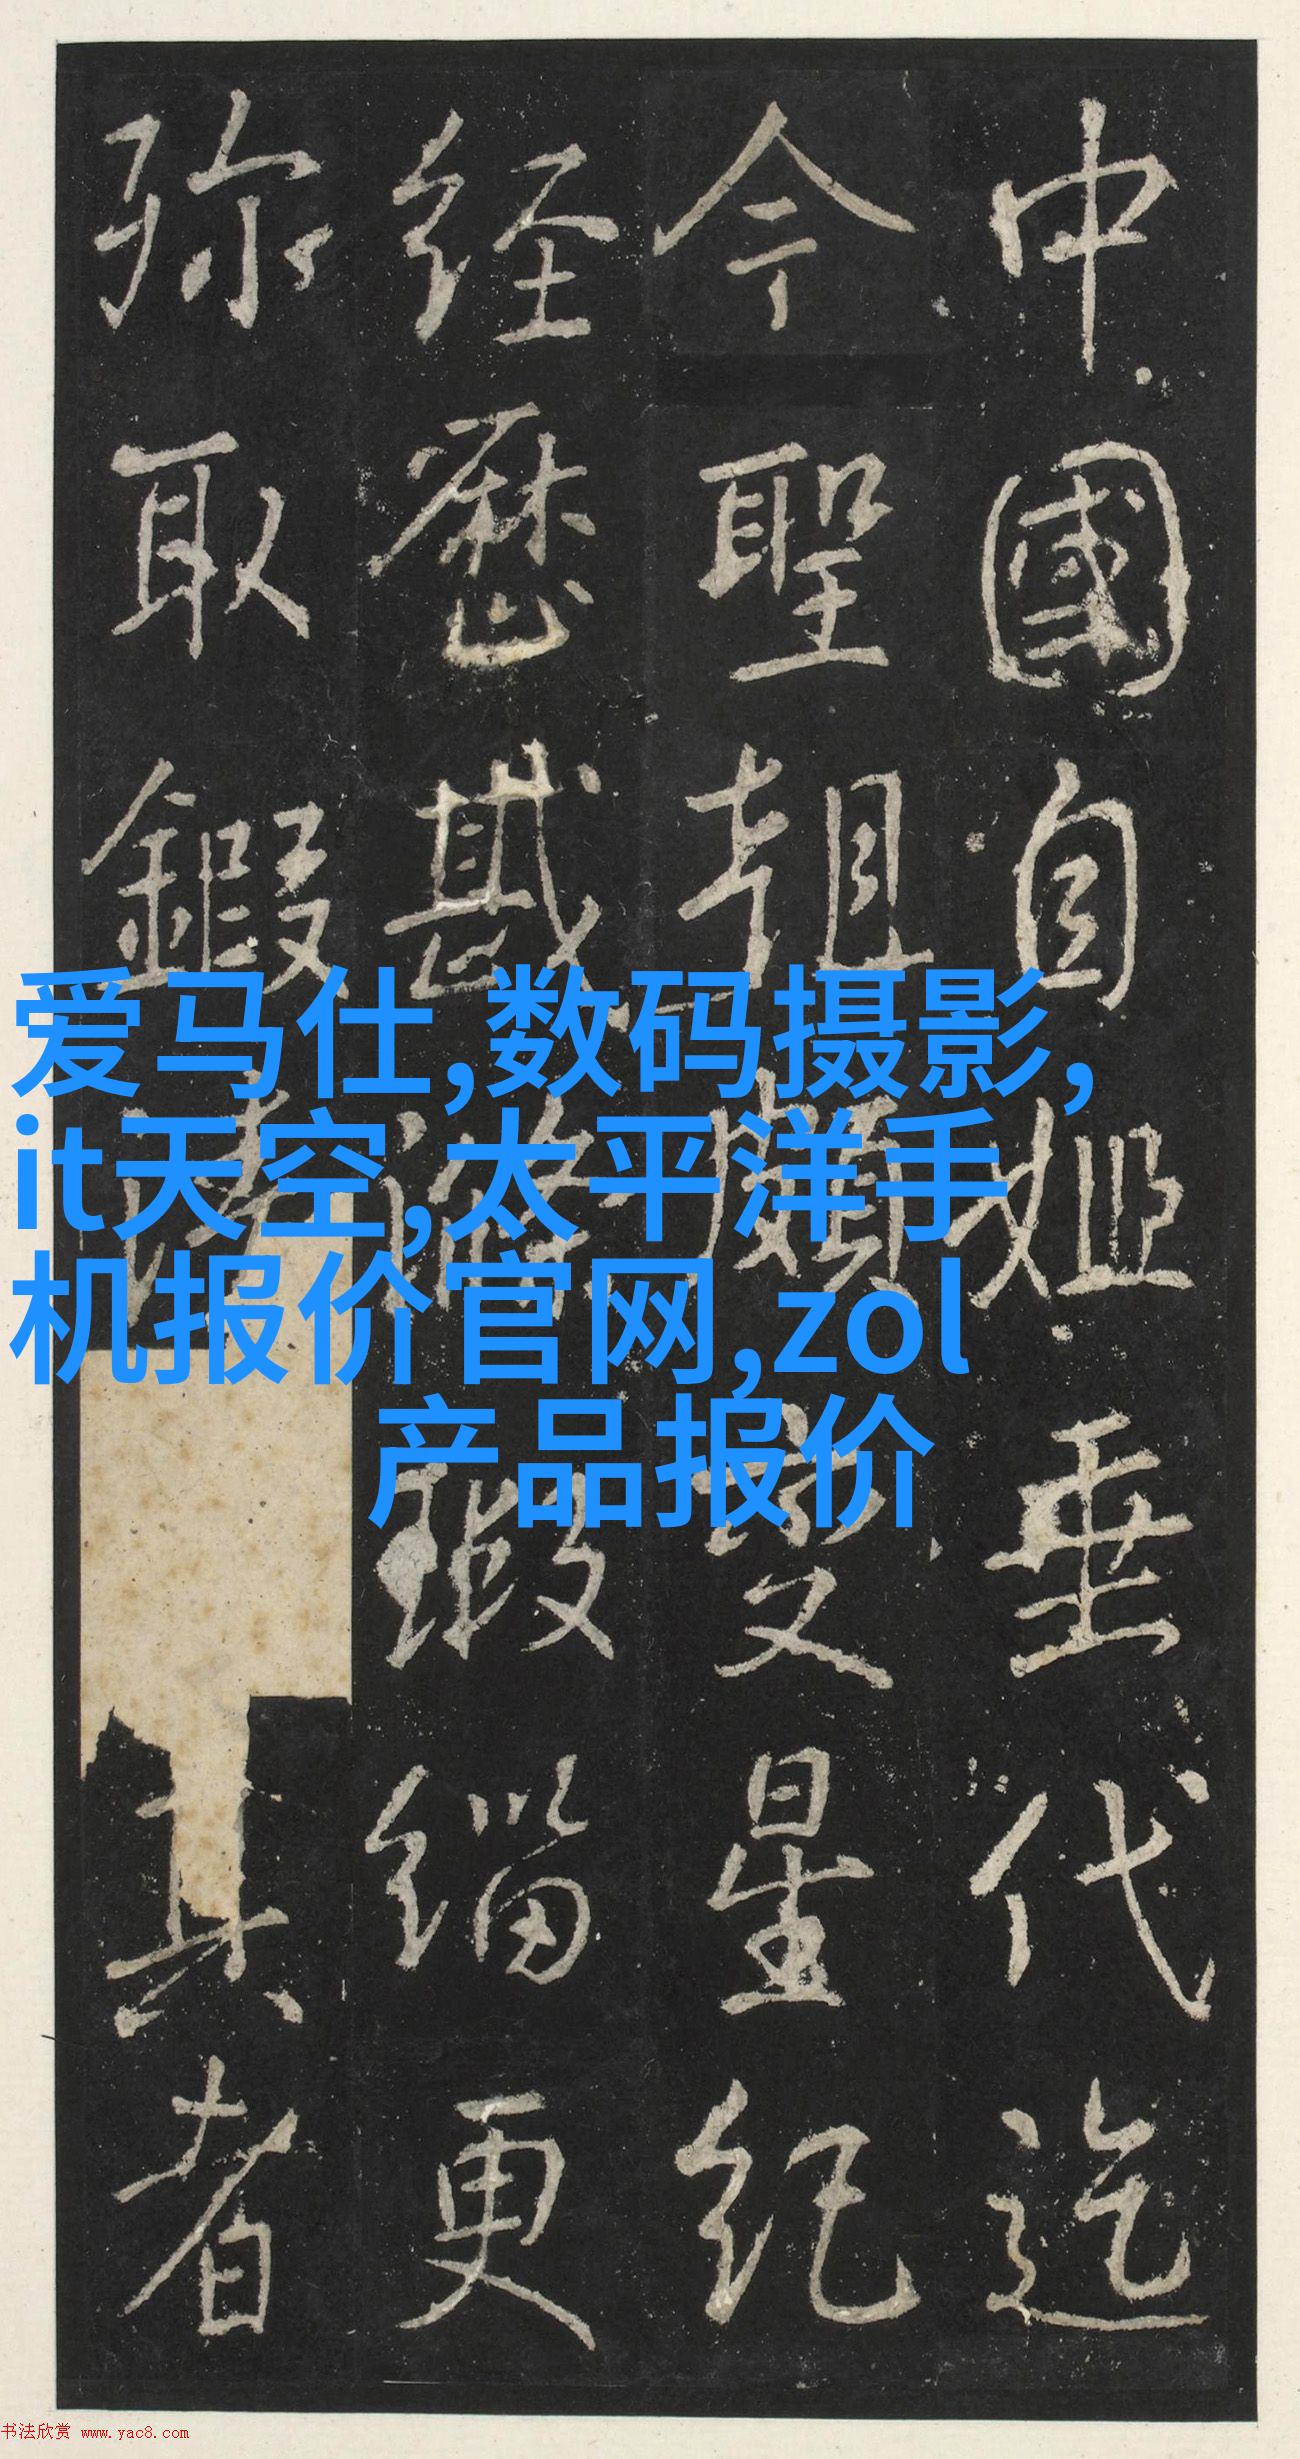 中國自姬垂代迄
今聖朝星紀
経歷緇更
弥取真者
爱马仕,数码摄影,
it天空,太平洋手
机报价官网,zol
产品报价
书法欣赏 www.yac8.com